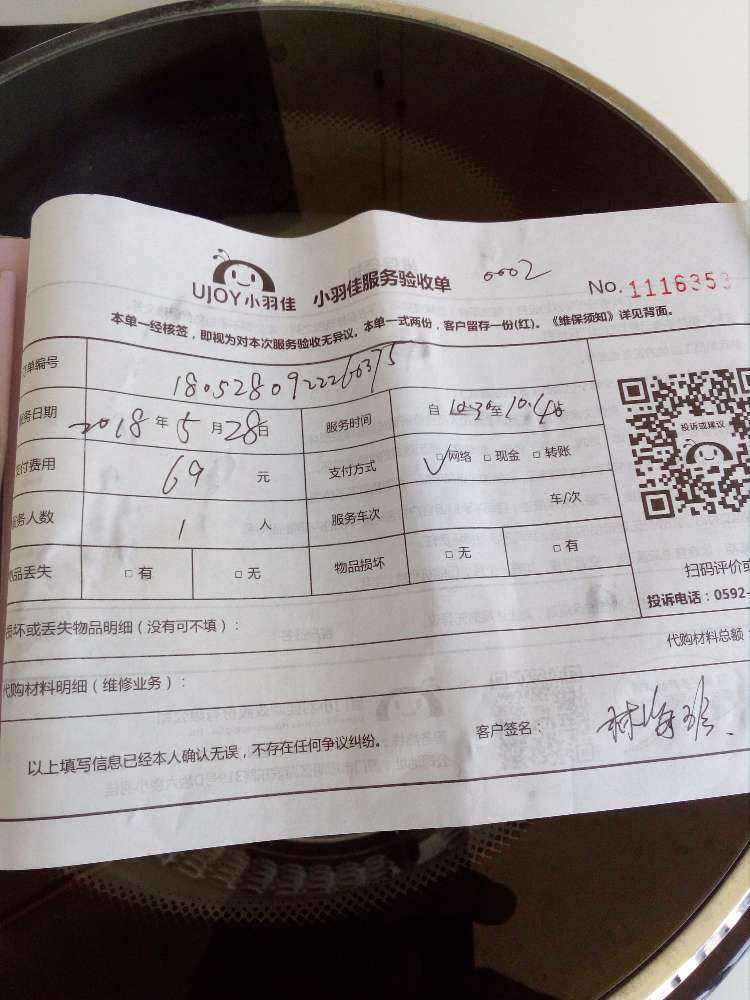 UJOY小羽佳 小羽佳服务验收单 0002 No. 1116353
本单一经核签，即视为对本次服务验收无异议。本单一式两份，客户留存一份(红)。《维保须知》详见背面。
单编号 18052809222260375
务日期 2018年5月28日 服务时间 自10:30至10:48
支付费用 69元 支付方式 ✓□网络 □现金 □转账
务人数 1人 服务车次 车/次
物品丢失 □有 □无 物品损坏 □无 □有
投诉或建议
扫码评价或
投诉电话：0592-
损坏或丢失物品明细（没有可不填）：
代购材料总额：
代购材料明细（维修业务）：
以上填写信息已经本人确认无误，不存在任何争议纠纷。 客户签名：